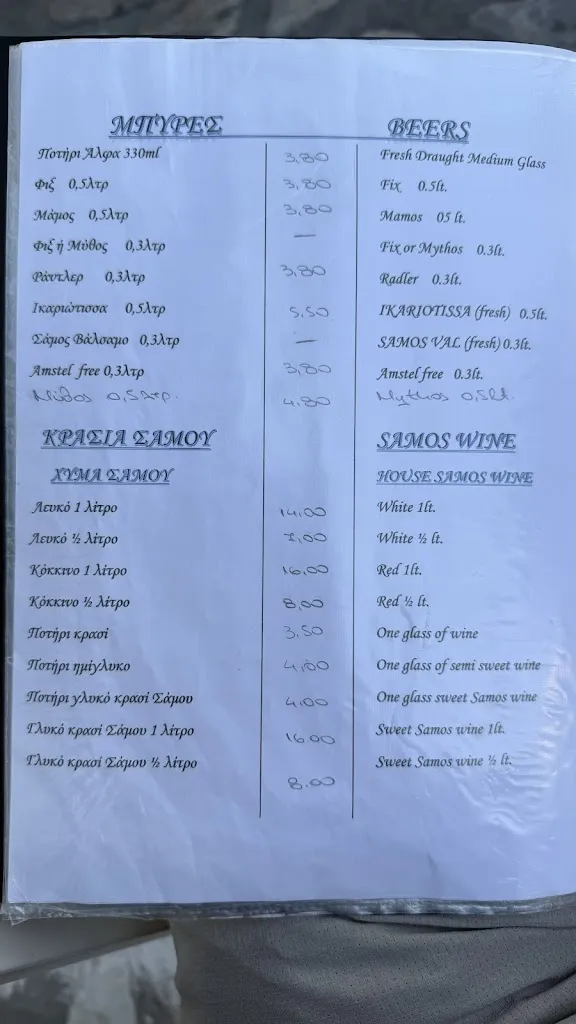 ΜΠΎΡΕΣ BEERS
Ποτήρι Άλφα 330ml 3,80 Fresh Draught Medium Glass
Φιξ 0,5λτρ 3,80 Fix 0.5lt.
Μάμος 0,5λτρ 3,80 Mamos 05 lt.
Φιξ ή Μύθος 0,3λτρ — Fix or Mythos 0.3lt.
Ράντλερ 0,3λτρ 3,80 Radler 0.3lt.
Ικαριώτισσα 0,5λτρ 5,50 IKARIOTISSA (fresh) 0.5lt.
Σάμος Βάλσαμο 0,3λτρ — SAMOS VAL (fresh) 0.3lt.
Amstel free 0,3λτρ 3,80 Amstel free 0.3lt.
Μύθος 0,5λτρ. 4.80 Mythos 0,5lt.
ΚΡΑΣΙΑ ΣΑΜΟΥ SAMOS WINE
ΧΥΜΑ ΣΑΜΟΥ HOUSE SAMOS WINE
Λευκό 1 λίτρο 14,00 White 1lt.
Λευκό ½ λίτρο 7,00 White ½ lt.
Κόκκινο 1 λίτρο 16,00 Red 1lt.
Κόκκινο ½ λίτρο 8,00 Red ½ lt.
Ποτήρι κρασί 3,50 One glass of wine
Ποτήρι ημίγλυκο 4,00 One glass of semi sweet wine
Ποτήρι γλυκό κρασί Σάμου 4,00 One glass sweet Samos wine
Γλυκό κρασί Σάμου 1 λίτρο 16.00 Sweet Samos wine 1lt.
Γλυκό κρασί Σάμου ½ λίτρο 8.00 Sweet Samos wine ½ lt.